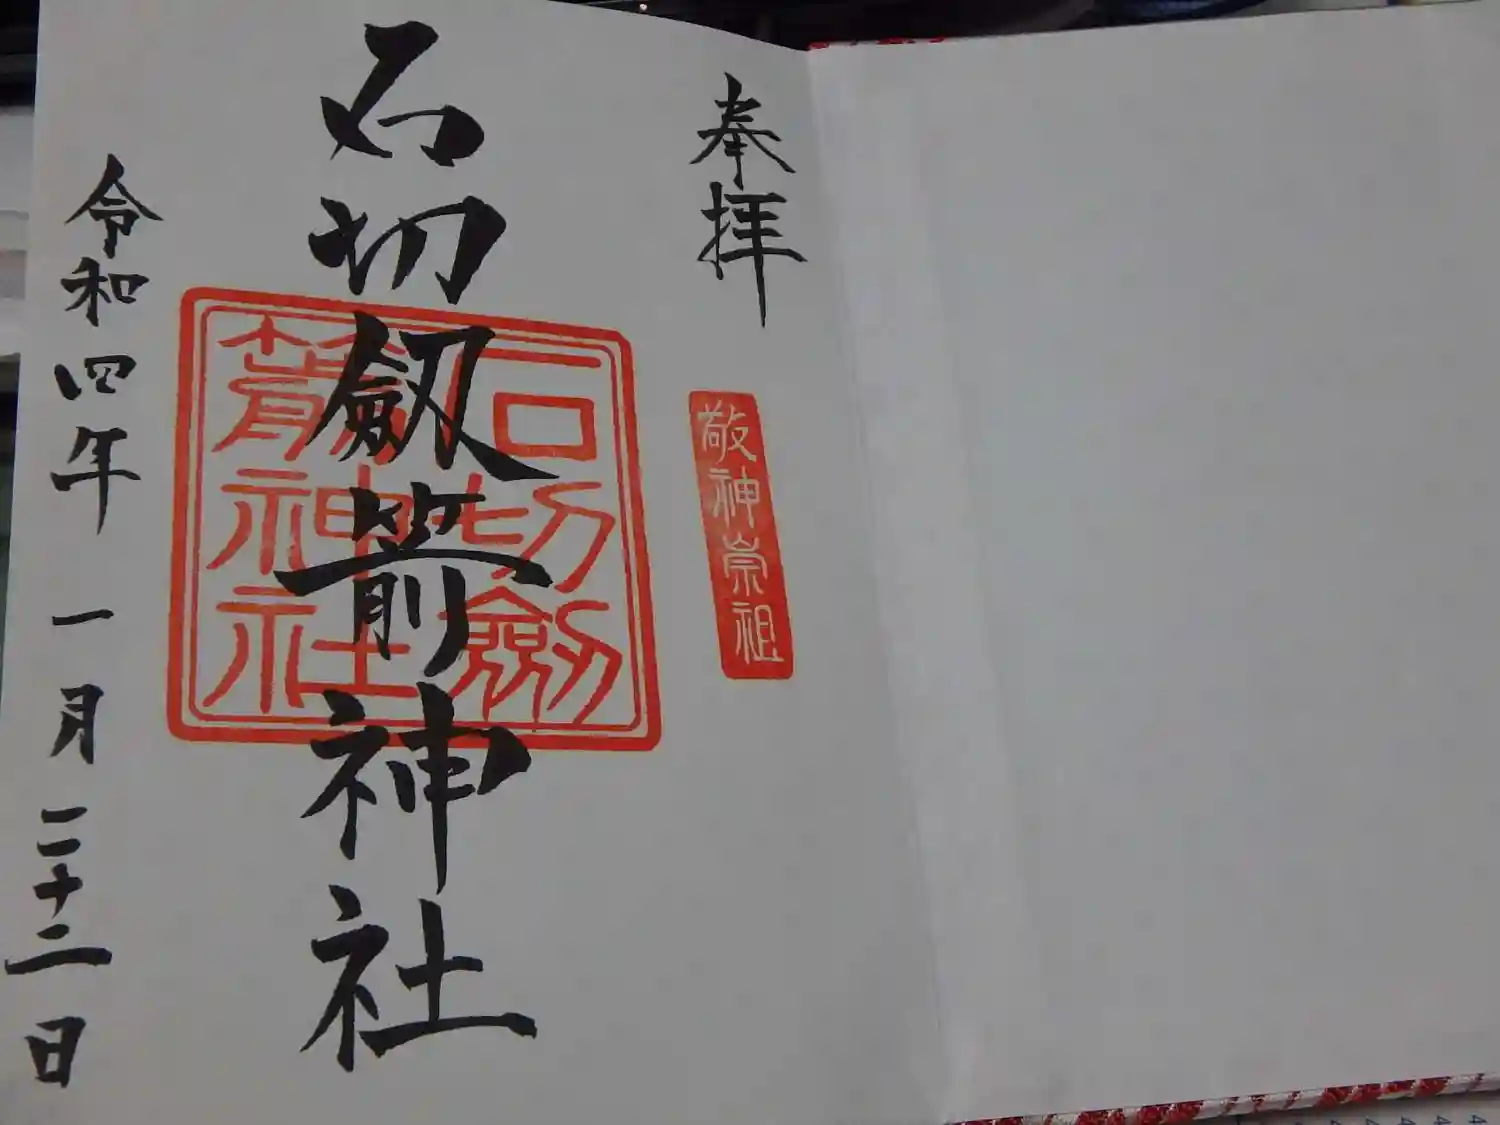 奉拝
敬神崇祖
石切劔箭神社
石切劔
箭神社
令和四年一月二十二日